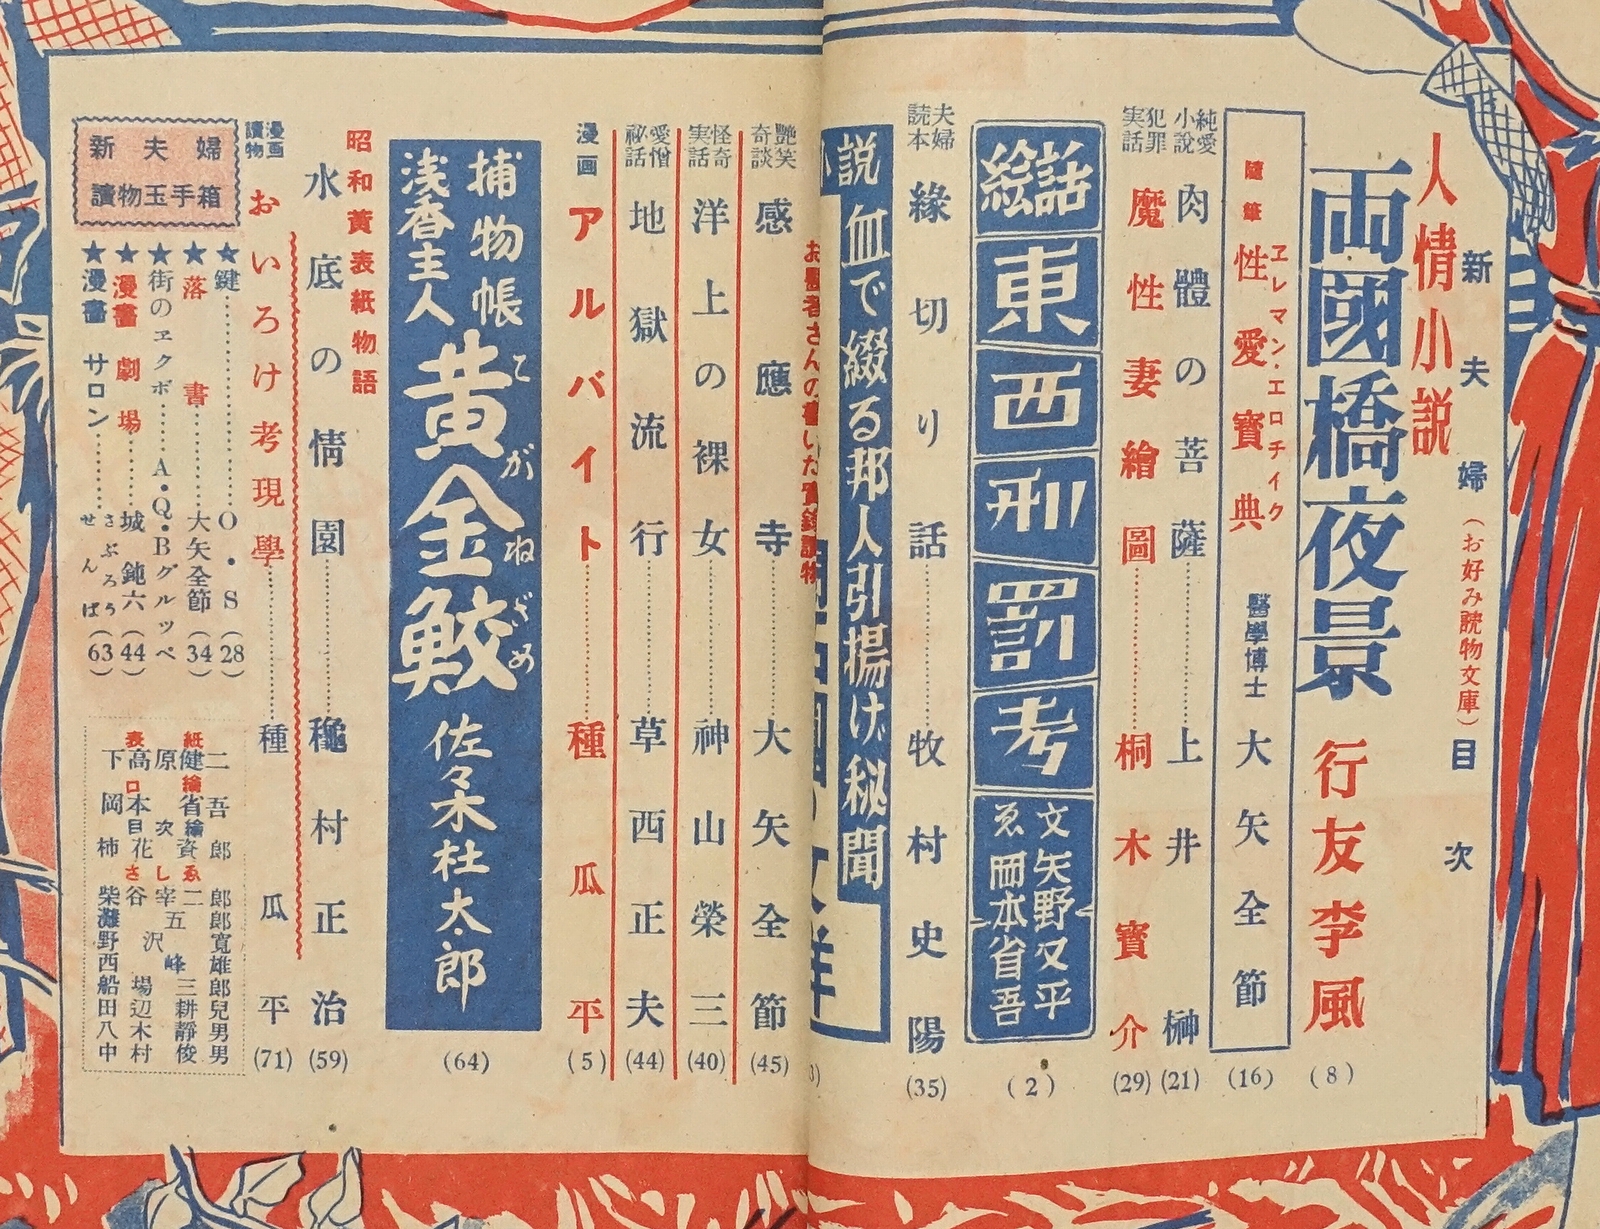 新夫婦(お好み読物文庫)目次
人情小説
両國橋夜景 行友李風(8)
隨筆 性愛寶典 醫學博士 大矢全節(16)
ヱレマン・エロチイク
純愛小説 肉體の菩薩……上井榊(21)
犯罪実話 魔性妻繪圖……桐木寶介(29)
絵話 東西刑罰考 文 矢野又平 ゑ 岡本省吾(2)
夫婦読本 緣切り話……牧村史陽(35)
説 血で綴る邦人引揚げ秘聞
お醫者さんの書いた實録読物
艶笑奇談 感應寺……大矢全節(45)
怪奇実話 洋上の裸女……神山榮三(40)
愛憎祕話 地獄流行……草西正夫(44)
漫画 アルバイト……種瓜平(5)
捕物帳
浅香主人 黄金鮫 佐々木杜太郎(64)
こがねざめ
昭和黄表紙物語
水底の情園……穐村正治(59)
漫画讀物 おいろけ考現學……種瓜平(71)
新夫婦
讀物玉手箱
★鍵……O・S(28)
★落書……大矢全節(34)
★街のヱクボ……A・Q・Bグルッペ
★漫畫劇場……城鈍六(44)
★漫畫サロン……さぶろうせんば(63)
表紙
口繪
目次
さしゑ